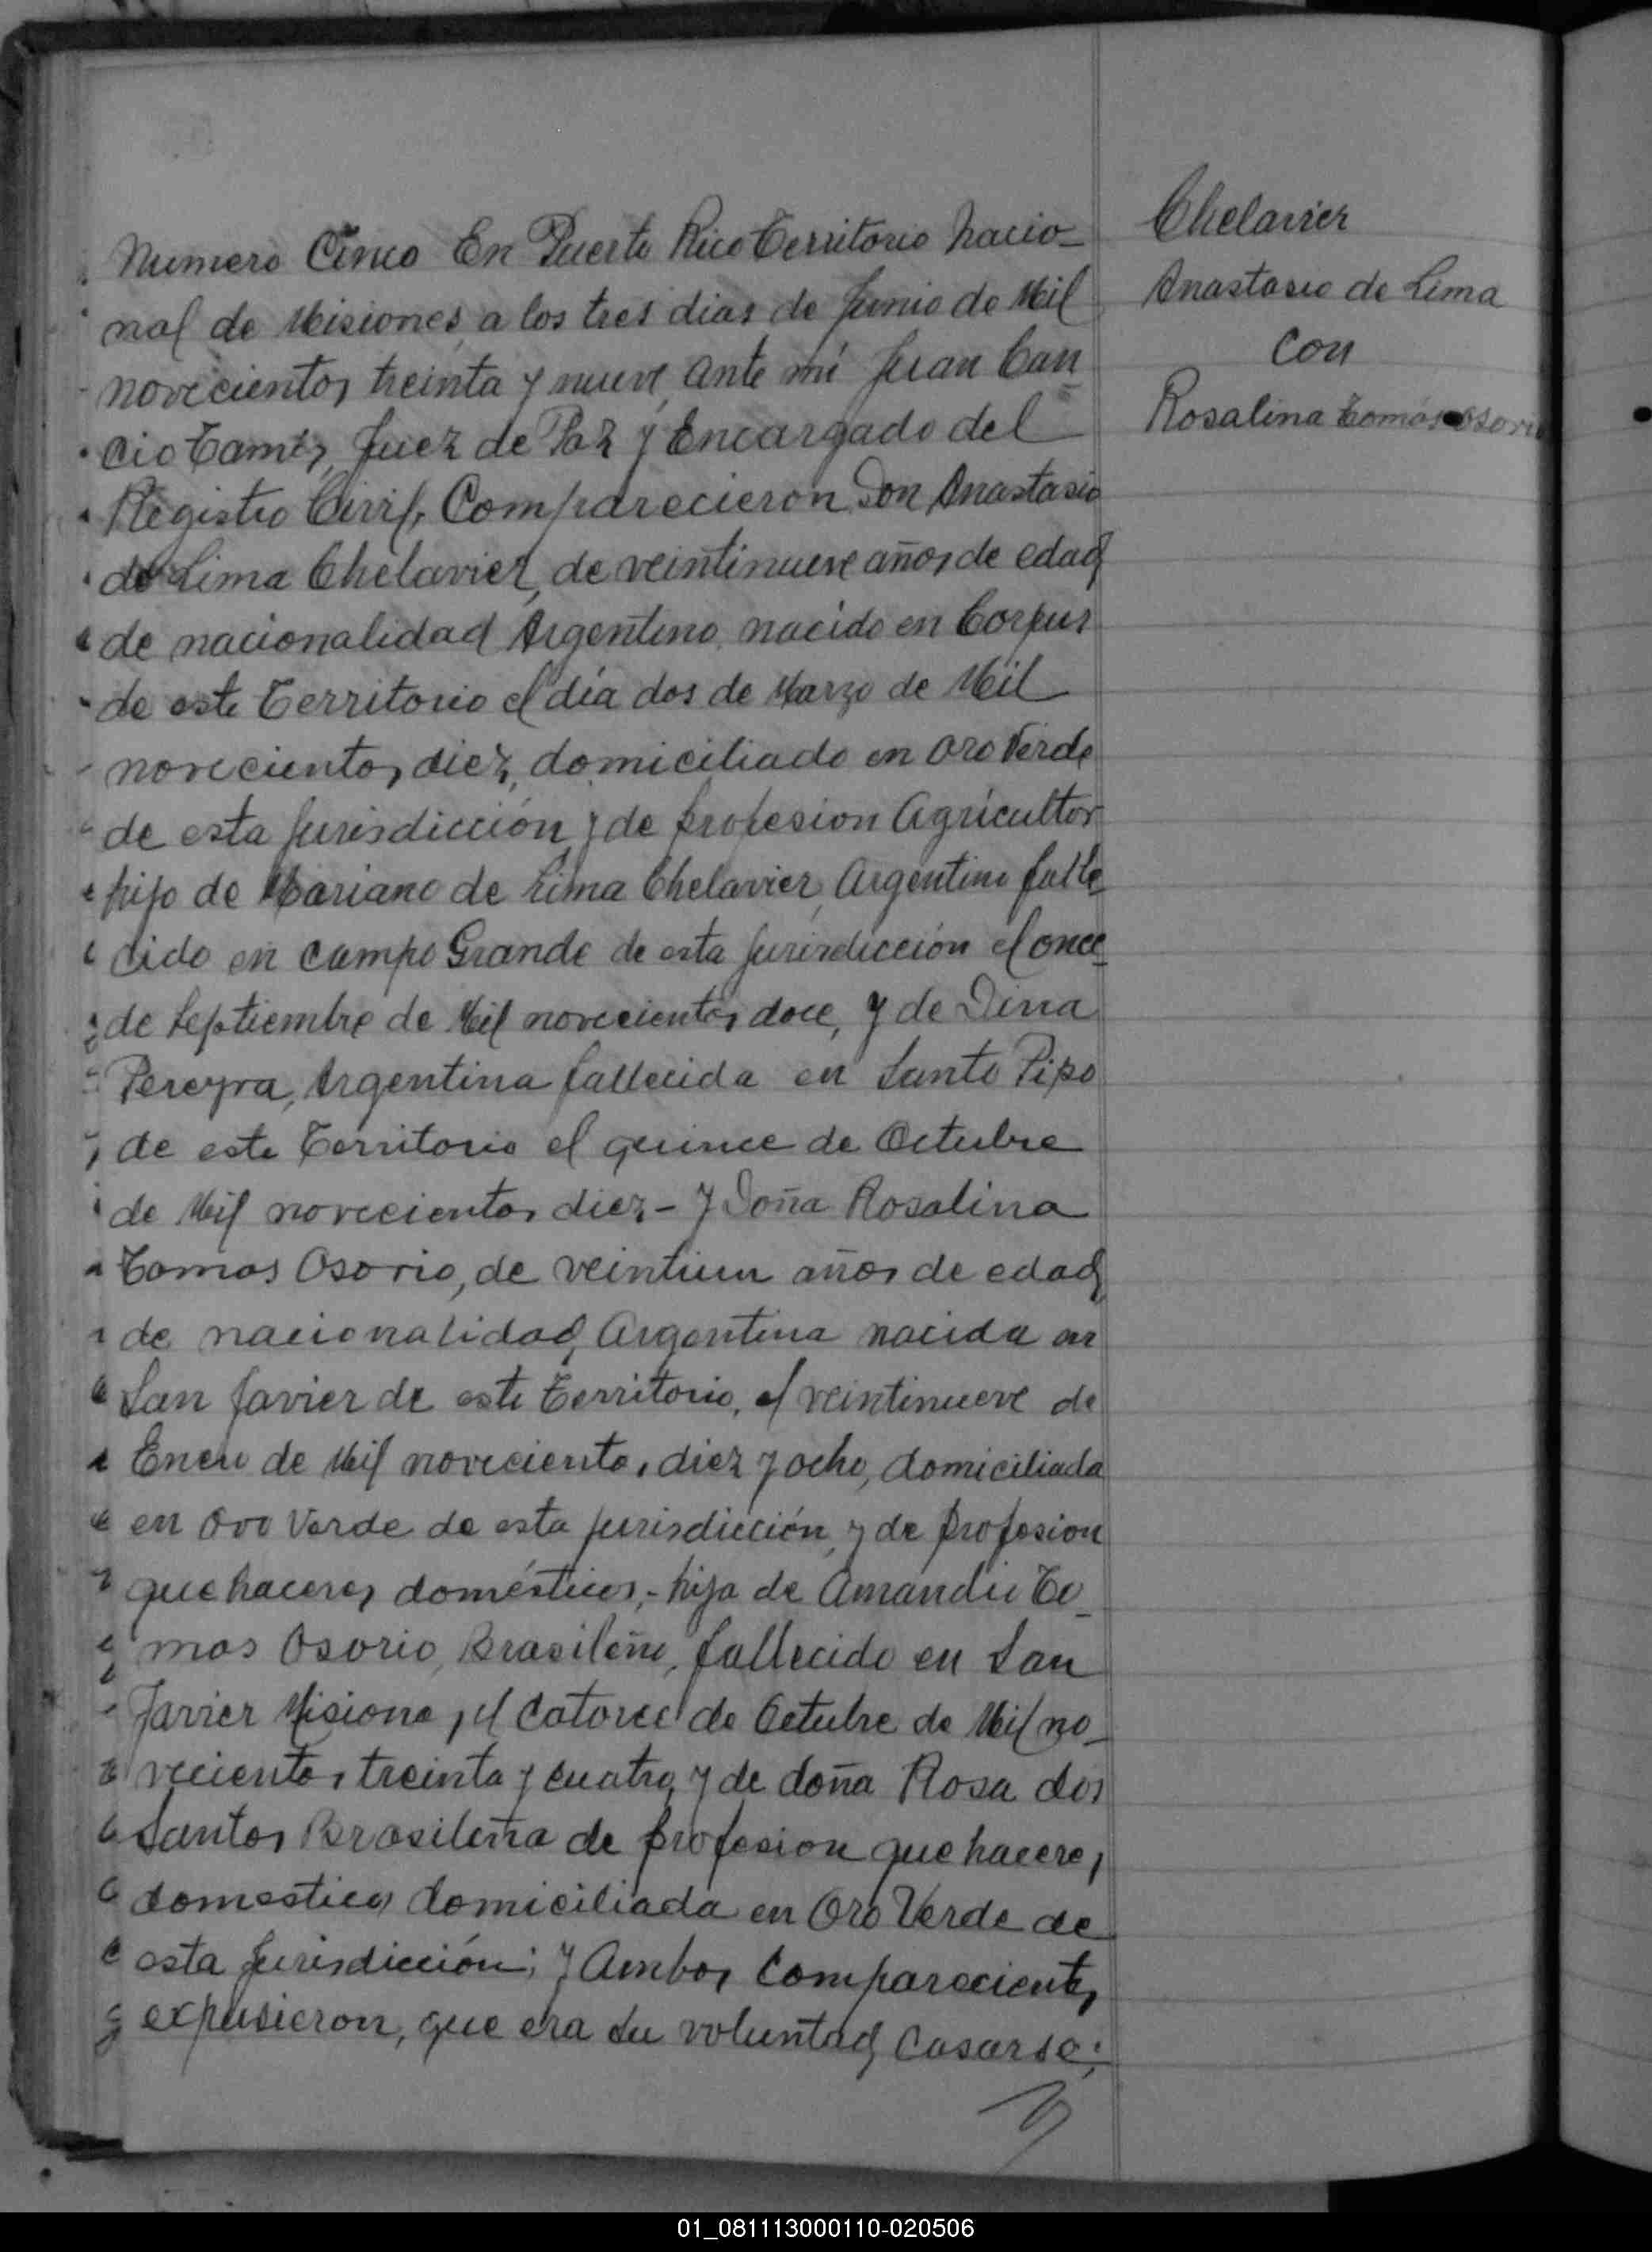 Numero Cinco En Puerto Rico Territorio Nacio-
nal de Misiones, a los tres dias de Junio de Mil
novecientos treinta y nueve, ante mí Juan Can
cio Tamis, Juez de Paz y Encargado del
Registro Civil, Comparecieron, Don Anastasio
de Lima Chelavier, de veintinueve años de edad
de nacionalidad Argentino, nacido en Corpus
de este Territorio el día dos de Marzo de Mil
novecientos diez, domiciliado en Oro Verde
de esta Jurisdicción y de profesion Agricultor
hijo de Mariano de Lima Chelavier, Argentino falle
cido en Campo Grande de esta Jurisdicción el once
de Septiembre de Mil novecientos doce, y de
Pereyra, Argentina fallecida en Santo Pipo
de este Territorio el quince de Octubre
de Mil novecientos diez - y Doña Rosalina
Tomas Osorio, de veintiun años de edad,
de nacionalidad, Argentina nacida en
San Javier de este Territorio, el veintinueve de
Enero de Mil novecientos diez y ocho, domiciliada
en Oro Verde de esta jurisdicción, y de profesion
quehaceres domésticos,- hija de Amandio To-
mas Osorio, Brasileño, fallecido en San
Javier Misiones, el Catorce de Octubre de Mil no-
vecientos treinta y cuatro, y de doña Rosa dos
Santos Brasileña de profesion quehaceres
domesticos domiciliada en Oro Verde de
esta Jurisdicción; y Ambos Comparecientes
expusieron, que era su voluntad Casarse;
Chelavier
Anastasio de Lima
Con
Rosalina Tomás Osorio
01_081113000110-020506